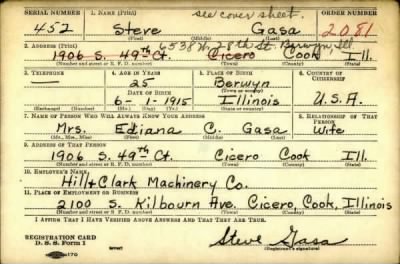 see cover sheet.
SERIAL NUMBER 1. NAME (Print) ORDER NUMBER
452 Steve Gasa 2081
(First) (Middle) (Last)
6538 W. 28th St. Berwyn, Ill.
2. ADDRESS (Print)
1906 S. 49th Ct. Cicero Cook Ill.
(Number and street or R. F. D. number) (Town) (County) (State)
3. TELEPHONE 4. AGE IN YEARS 5. PLACE OF BIRTH 6. COUNTRY OF CITIZENSHIP
25 Berwyn
(Town or county)
DATE OF BIRTH
6-1-1915 Illinois U.S.A.
(Exchange) (Number) (Mo.) (Day) (Yr.) (State or country)
7. NAME OF PERSON WHO WILL ALWAYS KNOW YOUR ADDRESS 8. RELATIONSHIP OF THAT PERSON
Mrs. Ediana C. Gasa Wife
(Mr., Mrs., Miss) (First) (Middle) (Last)
9. ADDRESS OF THAT PERSON
1906 S. 49th Ct. Cicero Cook Ill.
(Number and street or R. F. D. number) (Town) (County) (State)
10. EMPLOYER'S NAME
Hill & Clark Machinery Co.
11. PLACE OF EMPLOYMENT OR BUSINESS
2100 S. Kilbourn Ave. Cicero, Cook, Illinois
(Number and street or R. F. D. number) (Town) (County) (State)
I AFFIRM THAT I HAVE VERIFIED ABOVE ANSWERS AND THAT THEY ARE TRUE.
REGISTRATION CARD
D. S. S. Form 1
Steve Gasa
(Registrant's signature)